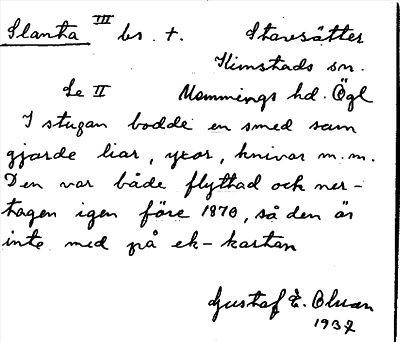 Slanka III bs. †. Skaresätter
Kimstads sn.
Le II Memmings hd. Ögl
I stugan bodde en smed som
gjorde liar, yxor, knivar m.m.
Den var både flyttad och ner-
tagen igen före 1870, så den är
inte med på ek-kartan
Gustaf E. Olsson
1937